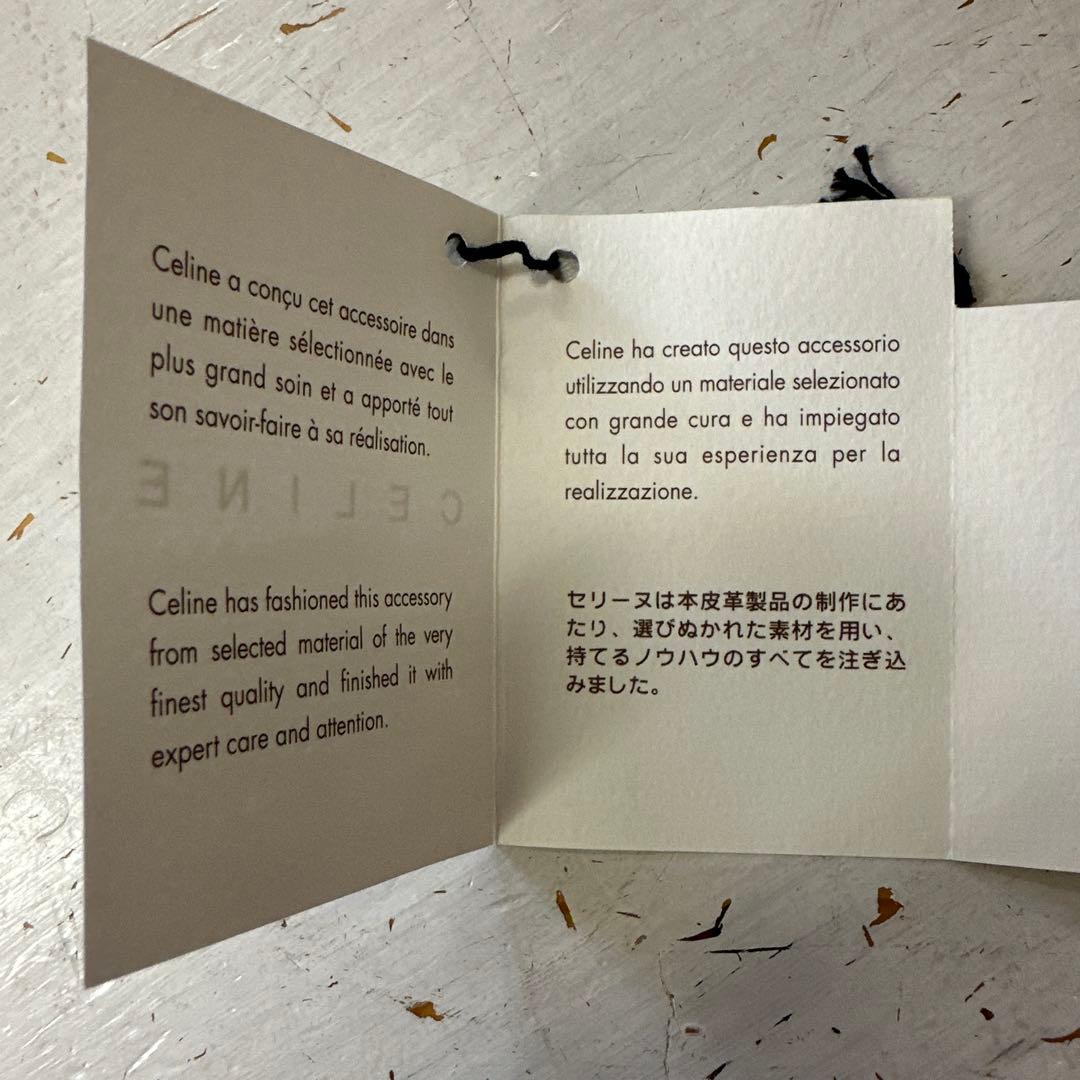 Celine a conçu cet accessoire dans
une matière sélectionnée avec le
plus grand soin et a apporté tout
son savoir-faire à sa réalisation.
CELINE
Celine has fashioned this accessory
from selected material of the very
finest quality and finished it with
expert care and attention.
Celine ha creato questo accessorio
utilizzando un materiale selezionato
con grande cura e ha impiegato
tutta la sua esperienza per la
realizzazione.
セリーヌは本皮革製品の制作にあ
たり、選びぬかれた素材を用い、
持てるノウハウのすべてを注ぎ込
みました。